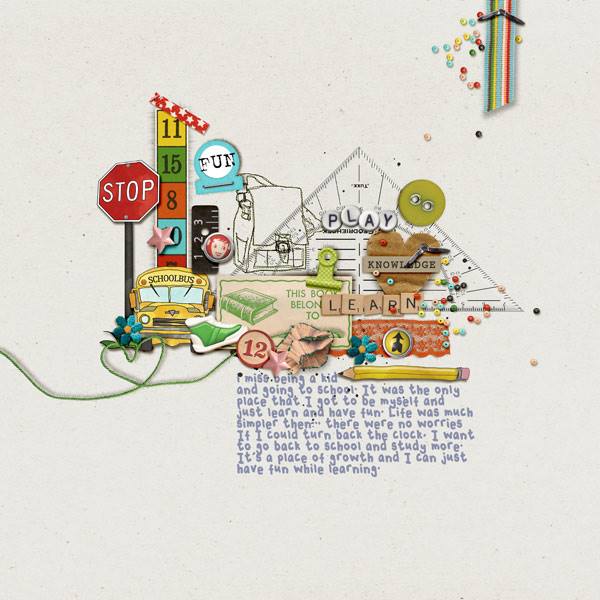 11
15
FUN
8
STOP
9
1 2 3
PLAY
KNOWLEDGE
SCHOOLBUS
THIS BOOK
BELONGS
TO
LEARN
12
i miss being a kid
and going to school. It was the only
place that I got to be myself and
just learn and have fun. Life was much
simpler then... there were no worries
If I could turn back the clock, I want
to go back to school and study more.
It's a place of growth and I can just
have fun while learning.